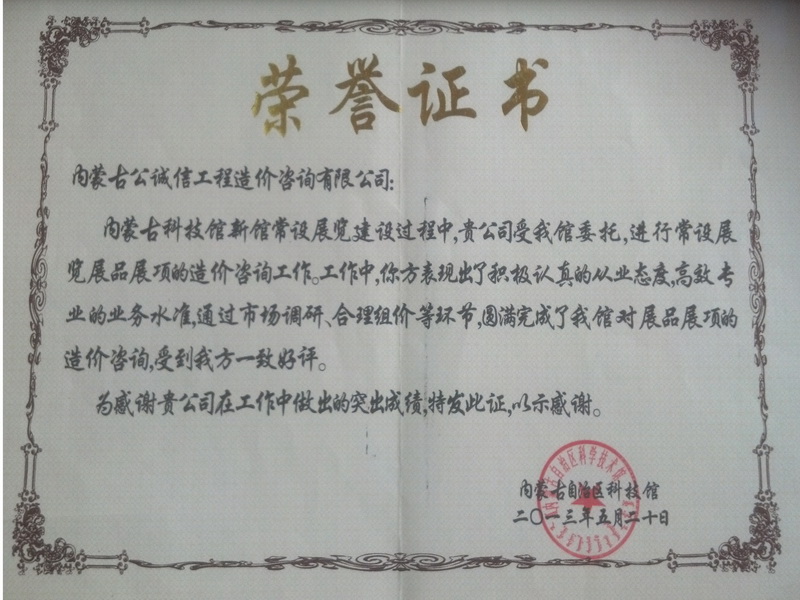 荣誉证书
内蒙古公诚信工程造价咨询有限公司:
内蒙古科技馆新馆常设展览建设过程中,贵公司受我馆委托,进行常设展
览展品展项的造价咨询工作。工作中,你方表现出了积极认真的从业态度,高效专
业的业务水准,通过市场调研、合理组价等环节,圆满完成了我馆对展品展项的
造价咨询,受到我方一致好评。
为感谢贵公司在工作中做出的突出成绩,特发此证,以示感谢。
内蒙古自治区科技馆
二〇一三年五月二十日
内蒙古自治区科学技术馆